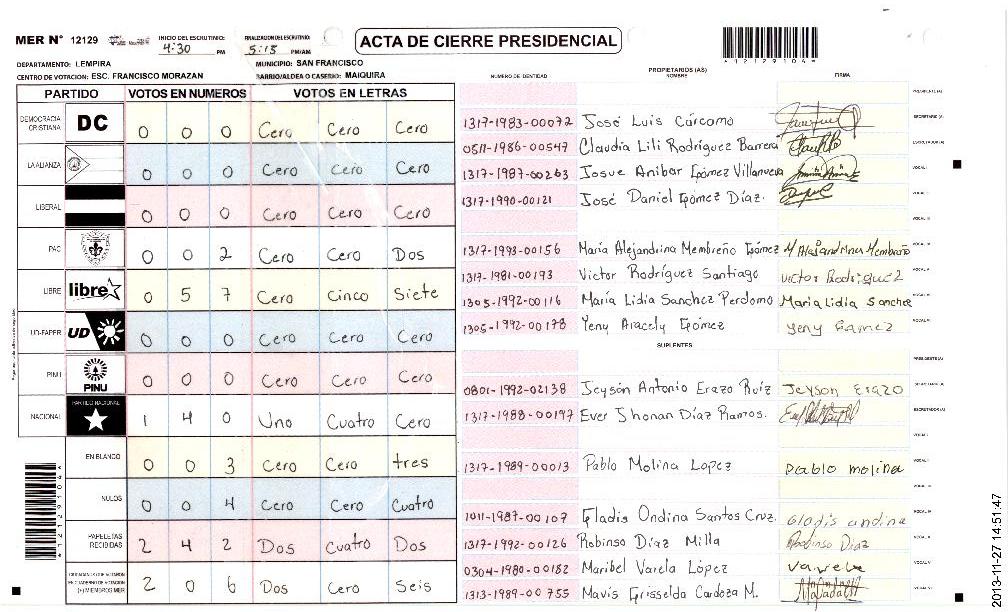 MER N° 12129
INICIO DEL ESCRUTINIO: 4:30 PM
FINALIZACION DEL ESCRUTINIO: 5:15 PM/AM
ACTA DE CIERRE PRESIDENCIAL
*12129104*
DEPARTAMENTO: LEMPIRA
MUNICIPIO: SAN FRANCISCO
CENTRO DE VOTACION: ESC. FRANCISCO MORAZAN
BARRIO/ALDEA O CASERIO: MAIQUIRA
PARTIDO VOTOS EN NUMEROS VOTOS EN LETRAS
DEMOCRACIA CRISTIANA DC 0 0 0 Cero Cero Cero
LA ALIANZA 0 0 0 Cero Cero Cero
LIBERAL 0 0 0 Cero Cero Cero
PAC 0 0 2 Cero Cero Dos
LIBRE libre 0 5 7 Cero Cinco Siete
UD-FAPER UD 0 0 0 Cero Cero Cero
PINU PINU 0 0 0 Cero Cero Cero
NACIONAL PARTIDO NACIONAL 1 4 0 Uno Cuatro Cero
EN BLANCO 0 0 3 Cero Cero tres
NULOS 0 0 4 Cero Cero Cuatro
PAPELETAS RECIBIDAS 2 4 2 Dos Cuatro Dos
CIUDADANOS QUE VOTARON EN CUADERNO DE VOTACION (+) MIEMBROS MER 2 0 6 Dos Cero Seis
*12129104*
NUMERO DE IDENTIDAD PROPIETARIOS (AS) NOMBRE FIRMA
PRESIDENTE (A)
1317-1983-00072 José Luis Cárcamo SECRETARIO (A)
0511-1986-00547 Claudia Lili Rodríguez Barrera ESCRUTADOR (A)
1317-1987-00263 Josue Anibar Gómez Villanueva VOCAL I
1317-1990-00121 José Daniel Gómez Díaz. VOCAL II
VOCAL III
1317-1993-00156 María Alejandrina Membreño Gómez M Alejandrina Membreño VOCAL IV
1317-1981-00193 Victor Rodríguez Santiago Victor Rodriguez VOCAL V
1305-1992-00116 María Lidia Sanchez Perdomo Maria Lidia Sanchez VOCAL VI
1305-1992-00178 Yeny Aracely Gómez Yeny Gamez VOCAL VII
SUPLENTES
PRESIDENTE (A)
0801-1992-02138 Jeyson Antonio Erazo Ruíz Jeyson Erazo SECRETARIO (A)
1317-1988-00197 Ever Jhonan Díaz Ramos. ESCRUTADOR (A)
VOCAL I
1317-1989-00013 Pablo Molina Lopez pablo molina VOCAL II
VOCAL III
1011-1987-00107 Gladis Ondina Santos Cruz. Gladis andina VOCAL IV
1317-1992-00126 Robinso Díaz Milla Robinso Diaz VOCAL V
0304-1980-00182 Maribel Varela López Varela VOCAL VI
1313-1989-00755 Mavis Grisselda Cardoza M. VOCAL VII
2013-11-27 14:51:47